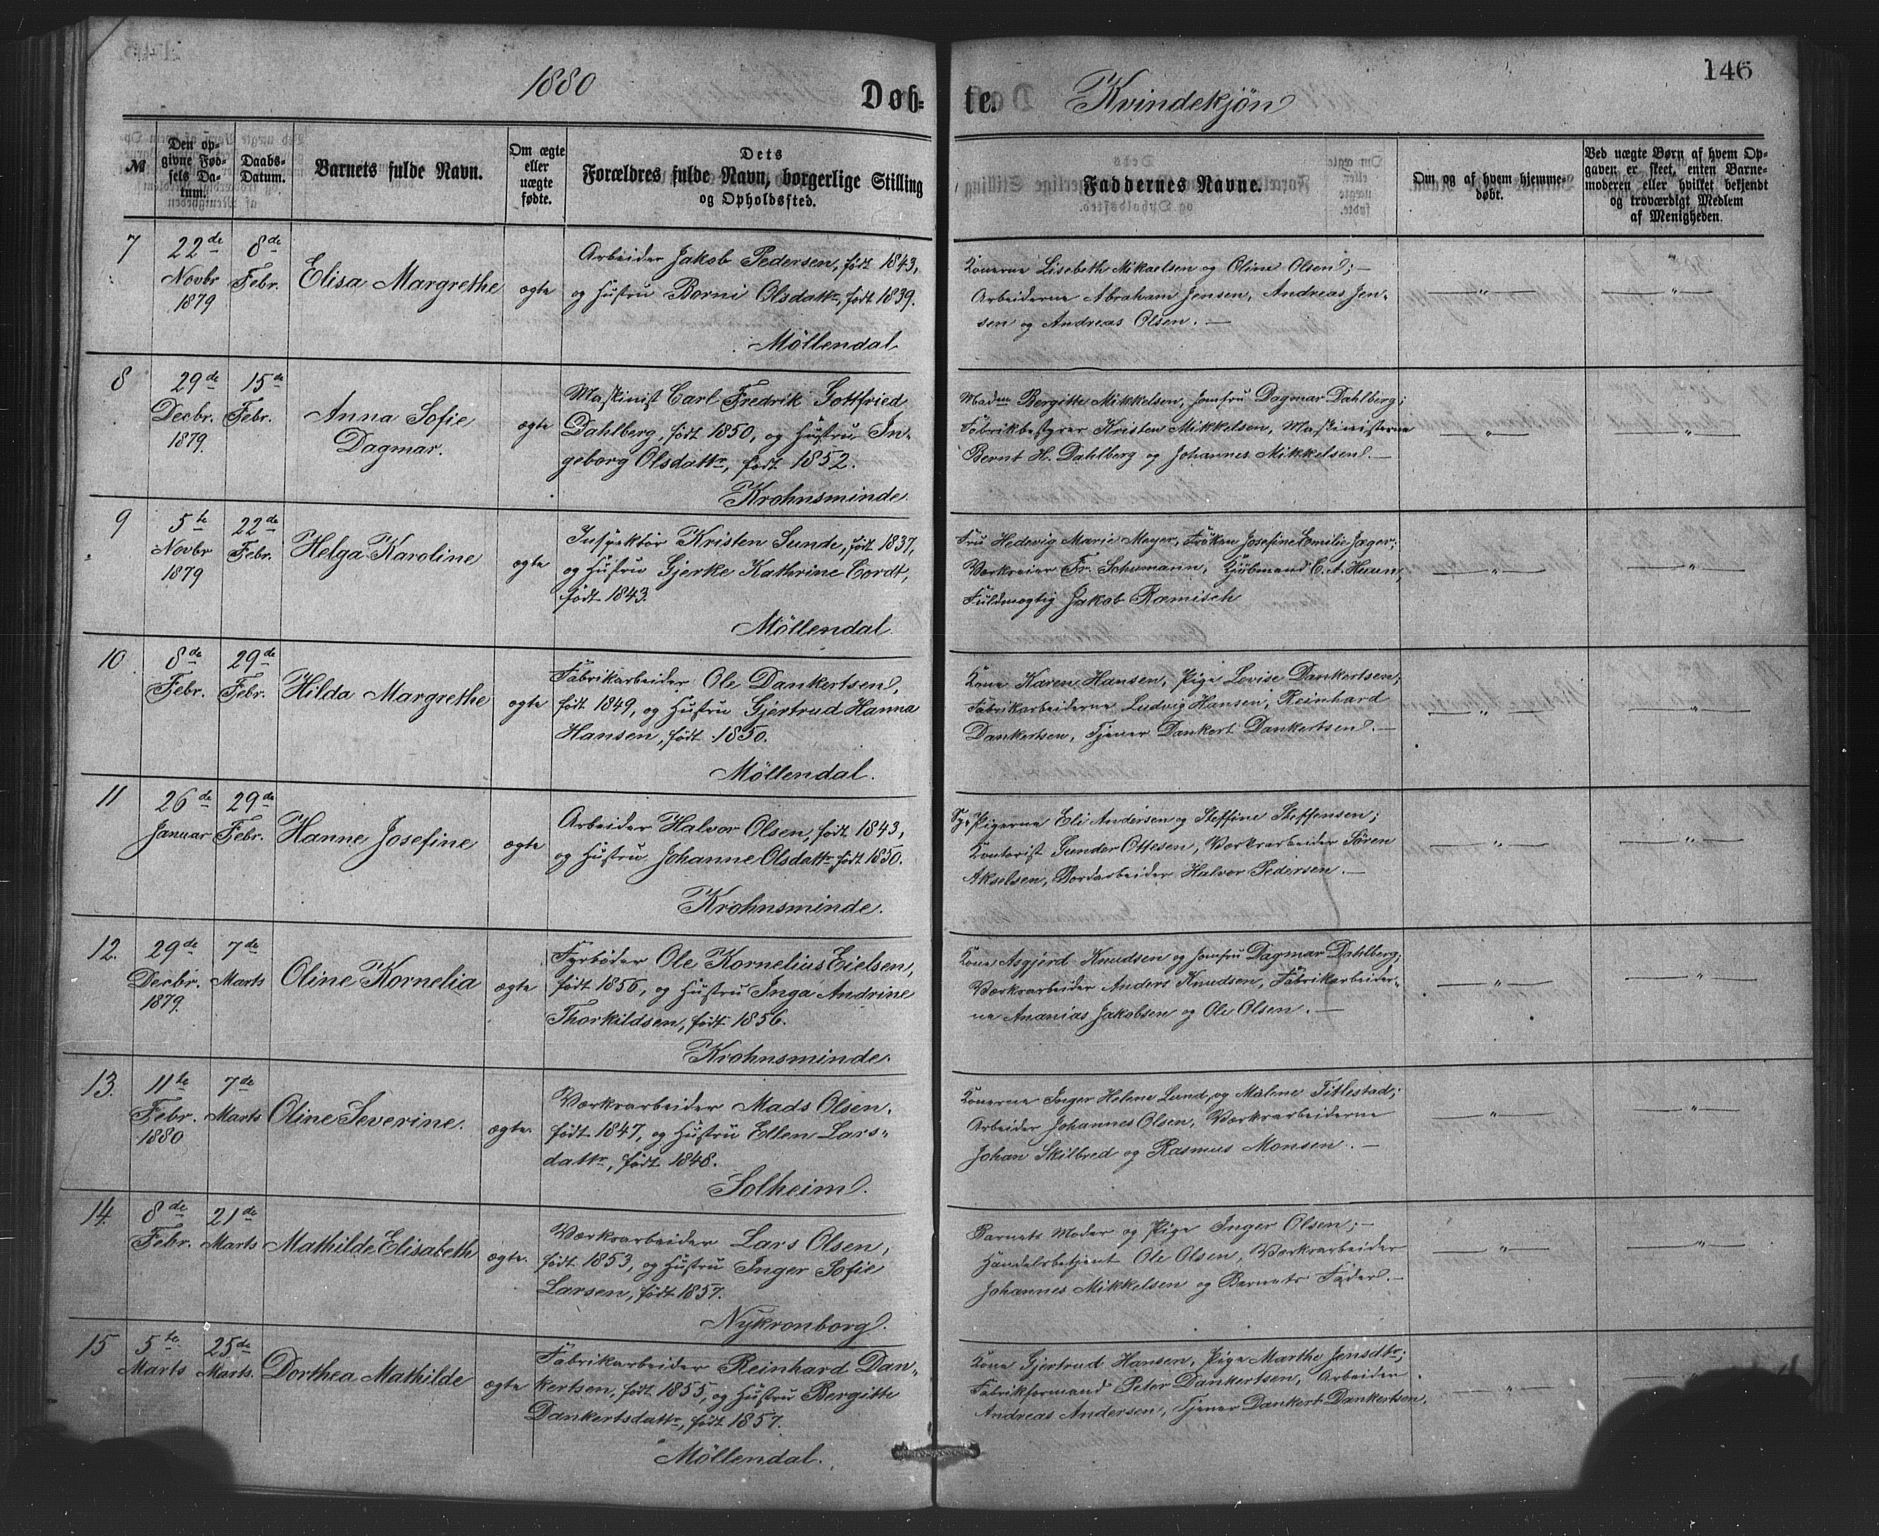 1880
Døb-
te.
Kvindekjön
146
№
Den op-
givne Fød-
sels Da-
tum.
Daabs-
Datum.
Barnets fulde Navn.
Om ægte
eller
uægte
fødte.
Dets
Forældres fulde Navn, borgerlige Stilling
og Opholdssted.
Faddernes Navne.
Om og af hvem hjemme-
døbt.
Ved uægte Børn af hvem Op-
gaven er skeet, enten Barne-
moderen eller hvilket bekjendt
og troværdigt Medlem
af Menigheden.
7
22de
Novbr
1879
8de
Febr.
Elisa Margrethe
ægte
Arbeider Jakob Pedersen, født 1843,
og Hustru Borni Olsdattr, født 1839.
Möllendal
Konerne Lisebeth Mikaelsen og Oline Olsen; —
Arbeiderne Abraham Jensen, Andreas Jen-
sen og Andreas Olsen. —
— " —
— " —
8
29de
Decbr.
1879.
15de
Febr.
Anna Sofie
Dagmar.
ægte
Maskinist Carl Fredrik Gottfried
Dahlberg, født 1850, og Hustru In-
geborg Olsdattr, født 1852.
Krohnsminde.
Madm Bergitte Mikkelsen, Jomfru Dagmar Dahlberg;
Fabrikbestyrer Kristen Mikkelsen, Maskinisterne
Bernt H. Dahlberg og Johannes Mikkelsen. —
— " —
— " —
9
5te
Novbr
1879
22de
Febr.
Helga Karoline
ægte
Inspektör Kristen Sunde, født 1837,
og Hustru Gjerke Kathrine Cordt,
født 1843.
Möllendal
Fru Hedevig Marie Meyer, Fröken Josefine Emilie Jæger;
Værkseier Fr. Schumann, Kjöbmand C. A.
Fuldmægtig Jakob Ræmisch
— " —
— " —
10
8de
Febr.
29de
Febr.
Hilda Margrethe
ægte
Fabrikarbeider Ole Dankertsen,
født 1849, og Hustru Gjertrud Hanna
Hansen, født 1850.
Möllendal.
Kone Karen Hansen, Pige Lovise Dankertsen;
Fabrikarbeiderne Ludvig Hansen, Reinhard
Dankertsen, Tjener Dankert Dankertsen. —
— " —
— " —
11
26de
Januar
29de
Febr.
Hanne Josefine
ægte
Arbeider Halvor Olsen, født 1843,
og Hustru Johanne Olsdattr født 1850.
Krohnsminde.
Sy-Pigerne Eli Andersen og Steffine Steffensen;
Kontorist Gunder Ottesen, Værksarbeider Sören
Akselsen, Bordarbeider Halvor Pedersen. —
— " —
— " —
12.
29de
Decbr.
1879.
7de
Marts
Oline Kornelia
ægte
Fyrböder Ole Kornelius Eielsen,
født 1856, og Hustru Inga Andrine
Thorkildsen, født 1856.
Krohnsminde.
Kone Asgjerd Knudsen og Jomfru Dagmar Dahlberg;
Værksarbeider Anders Knudsen, Fabrikarbeider-
ne Ananias Jakobsen og Ole Olsen. —
— " —
— " —
13.
11te
Febr.
1880
7de
Marts
Oline Severine.
ægte.
Værksarbeider Mads Olsen,
født 1847, og Hustru Ellen Lars-
dattr, født 1848.
Solheim.
Konerne Inger Helene Lund, og Malene Titlestad;
Arbeider Johannes Olsen, Værksarbeiderne
Johan Skilbred og Rasmus Monsen. —
— " —
— " —
14.
8de
Febr.
21de
Marts
Mathilde Elisabeth
ægte.
Værksarbeider Lars Olsen,
født 1853, og Hustru Inger Sofie
Larsen, født 1857.
Nykronborg.
Barnets Moder og Pige Inger Olsen; —
Handelsbetjent Ole Olsen, Værksarbeider
Johannes Mikkelsen og Barnets Fader. —
— " —
— " —
15
5te
Marts
25de
Marts.
Dorthea Mathilde
ægte
Fabrikarbeider Reinhard Dan-
kertsen, født 1855, og Hustru Bergitte
Dankertsdattr, født 1857.
Möllendal.
Kone Gjertrud Hansen, Pige Marthe Jensdtr;
Fabrikformand Peter Dankertsen, Arbeider
Andreas Andersen, Tjener Dankert Dankertsen.
— " —
— " —